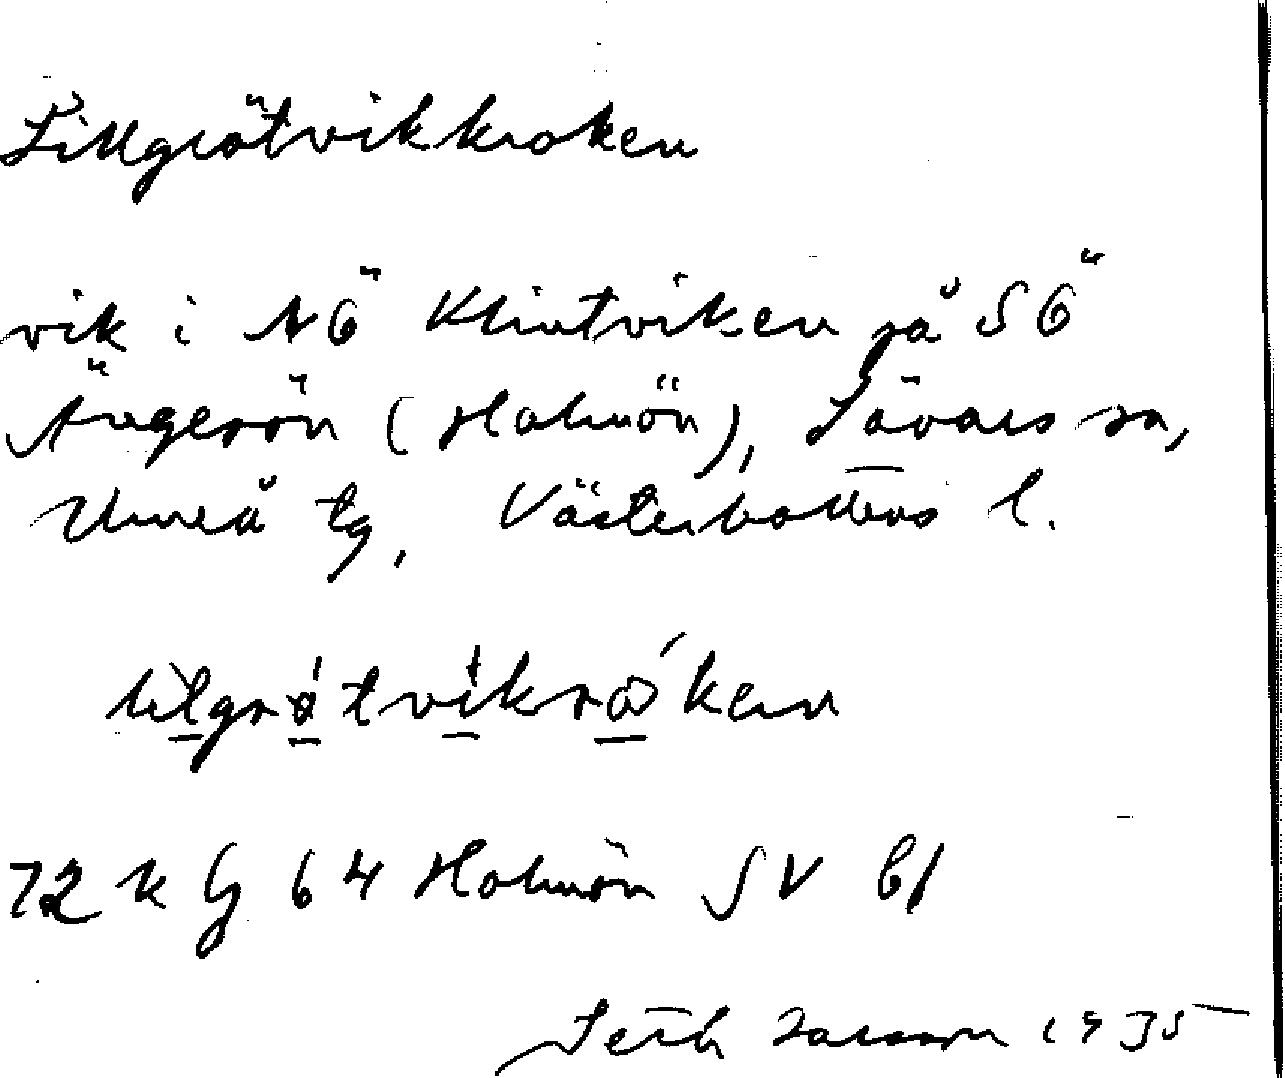 Lillgrötvikkroken
vik i NÖ Klintviken på SÖ
Ängesön (Holmön), Sävars sn,
Umeå tg, Västerbottens l.
72 k G 64 Holmön SV bl
Seth Larsson 1935